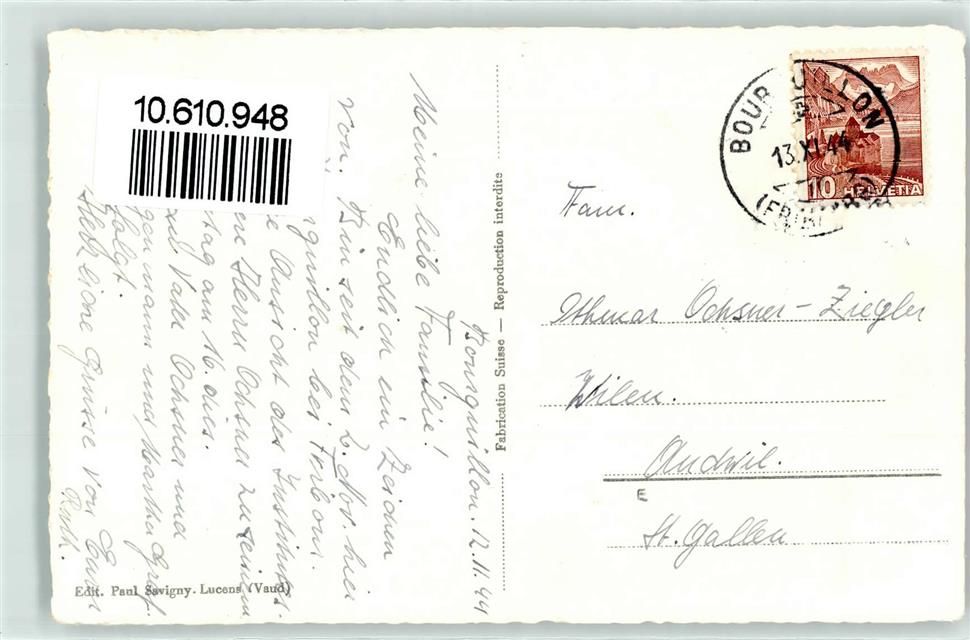 10.610.948
BOURGUILLON
13.XI.44
(FRIBOURG)
10 HELVETIA
Bourguillon. 12.11.44
Meine liebe Familie!
Endlich ein Zeichen
von. Bin seit dem 2. Nov. hier
guillon bei Freibourg.
e Ansicht des Institutes.
ere Herrn Ochsner zu seinem
stag am 16. dies.
und Vater Ochsner und
genmann und Marthy Graf
folgt.
Herzliche Grüsse von Eurer
Ruth.
Fabrication Suisse — Reproduction interdite
Edit. Paul Savigny. Lucens (Vaud)
Fam.
Othmar Ochsner-Ziegler
Wilen.
Andwil.
E
St. Gallen